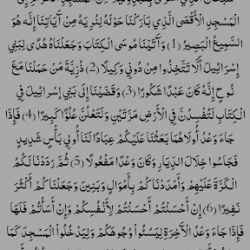 الْمَسْجِدِ الْأَقْصَى الَّذِي بَارَكْنَا حَوْلَهُ لِنُرِيَهُ مِنْ آيَاتِنَا إِنَّهُ هُوَ
السَّمِيعُ الْبَصِيرُ (1) وَآتَيْنَا مُوسَى الْكِتَابَ وَجَعَلْنَاهُ هُدًى لِبَنِي
إِسْرَائِيلَ أَلَّا تَتَّخِذُوا مِنْ دُونِي وَكِيلًا (2) ذُرِّيَّةَ مَنْ حَمَلْنَا مَعَ
نُوحٍ إِنَّهُ كَانَ عَبْدًا شَكُورًا (3) وَقَضَيْنَا إِلَى بَنِي إِسْرَائِيلَ فِي
الْكِتَابِ لَتُفْسِدُنَّ فِي الْأَرْضِ مَرَّتَيْنِ وَلَتَعْلُنَّ عُلُوًّا كَبِيرًا (4) فَإِذَا
جَاءَ وَعْدُ أُولَاهُمَا بَعَثْنَا عَلَيْكُمْ عِبَادًا لَنَا أُولِي بَأْسٍ شَدِيدٍ
فَجَاسُوا خِلَالَ الدِّيَارِ وَكَانَ وَعْدًا مَفْعُولًا (5) ثُمَّ رَدَدْنَا لَكُمُ
الْكَرَّةَ عَلَيْهِمْ وَأَمْدَدْنَاكُمْ بِأَمْوَالٍ وَبَنِينَ وَجَعَلْنَاكُمْ أَكْثَرَ
نَفِيرًا (6) إِنْ أَحْسَنْتُمْ أَحْسَنْتُمْ لِأَنْفُسِكُمْ وَإِنْ أَسَأْتُمْ فَلَهَا
فَإِذَا جَاءَ وَعْدُ الْآخِرَةِ لِيَسُوءُوا وُجُوهَكُمْ وَلِيَدْخُلُوا الْمَسْجِدَ كَمَا